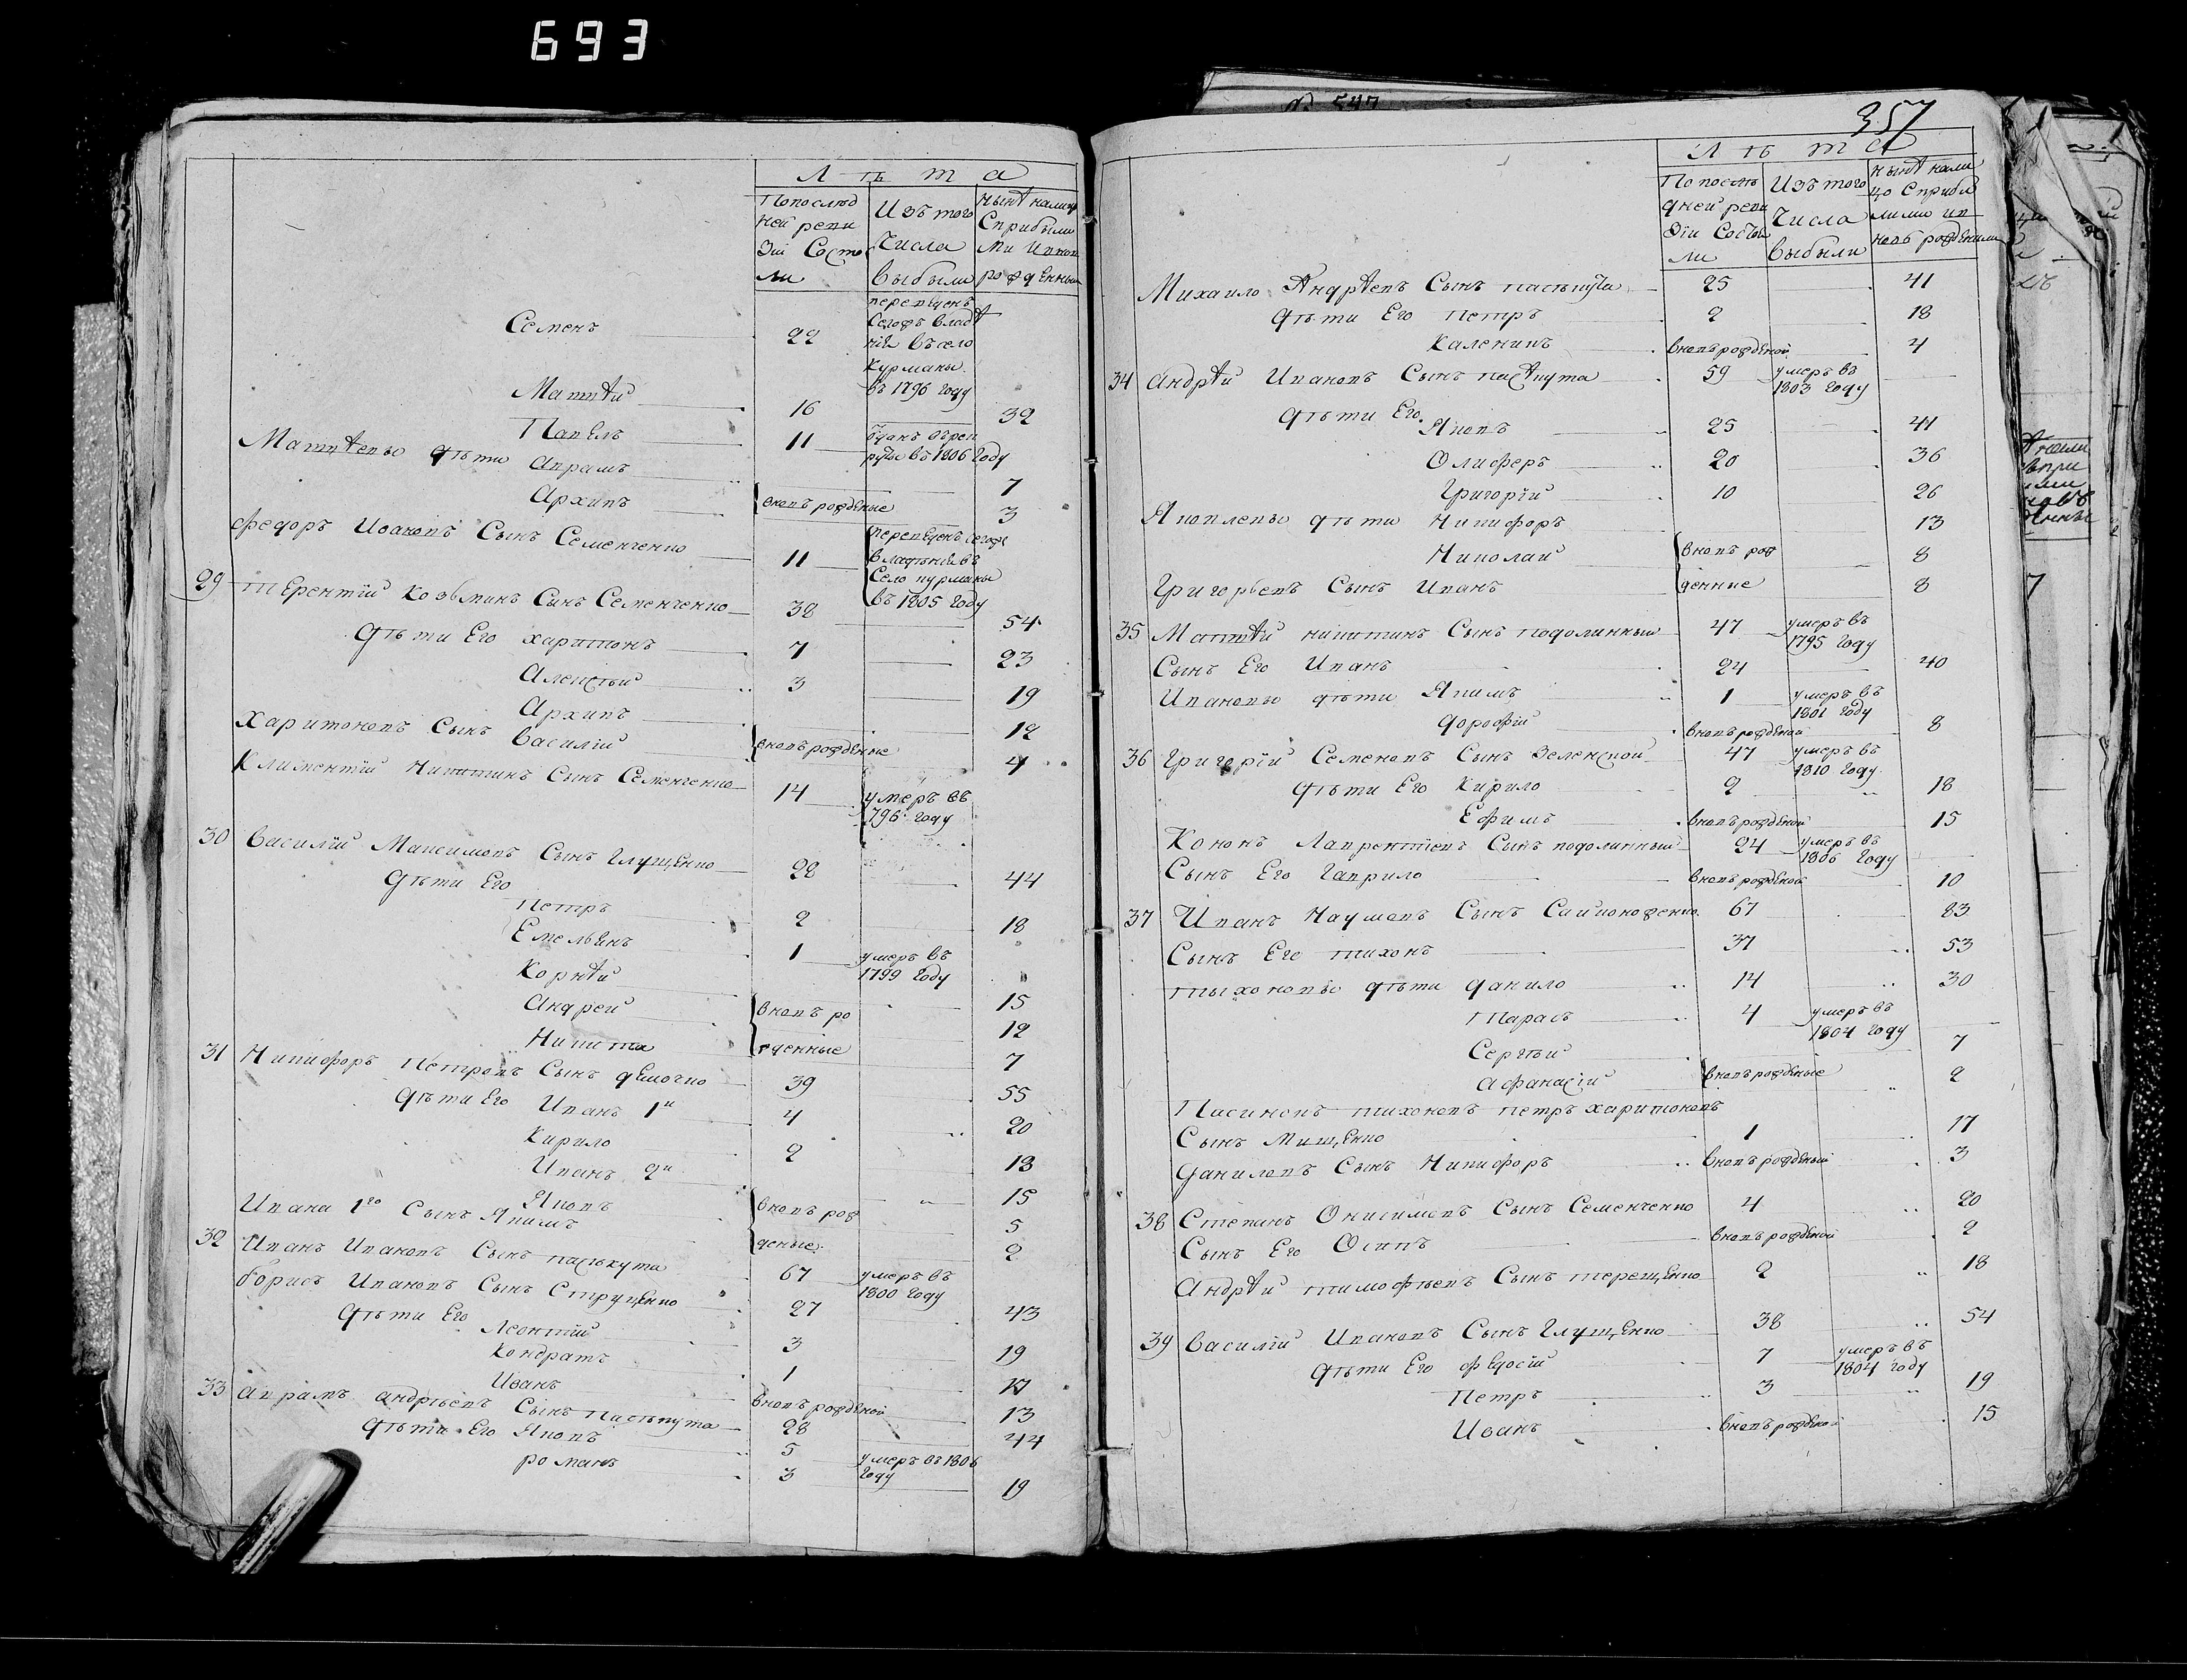 693
Лѣта
Попослѣд Изъ того нынѣ налицо
ней реви Числа Сприбыли
зіи Состо выбыли ми ивнов
ли рожденными
Семенъ 22 переведенъ Сегожъ владѣнія въ село Курманы въ 1796 году
Матвѣй 16 32
Павелъ 11 отданъ в рекруты въ 1806 году
Матвѣевы дѣти Аврамъ 7
Архипъ вновь рожденые 3
Федоръ Ивановъ Сынъ Семенченко 11 переведенъ сегожъ владѣнія въ Село курманы въ 1805 году
29 Терентій Козьминъ Сынъ Семенченко 38 54
Дѣти Его харитонъ 7 23
Алексѣй 3 19
Архипъ 12
Харитоновъ Сынъ Василій вновь рожденые 4
Климентій Никитинъ Сынъ Семенченко 14 умеръ въ 796 году
30 Василій Максимовъ Сынъ Глущенко 28 44
Дѣти Его
Петръ 2 18
Емельянъ 1 умеръ въ 1799 году
Корнѣй 15
Андрей вновь ро 12
Никита жденные 7
31 Никифоръ Петровъ Сынъ демочко 39 55
Дѣти Его Иванъ 1й 4 20
Кирило 2 18
Иванъ 2й 15
Яковъ вновь рож 5
Ивана 1го Сынъ Якимъ деные 2
32 Иванъ Ивановъ Сынъ пасѣкута 67 умеръ въ 1800 году
Борисъ Ивановъ Сынъ Струценко 27 43
Дѣти Его Леонтій 3 19
Кондратъ 1 17
Иванъ вновь рожденой 13
33 Аврамъ андрѣевъ Сынъ Пасѣкута 28 44
Дѣти Его Яковъ 5 умеръ въ 1806 году
романъ 3 19
357
Лѣта
Попослѣ Изъ того нынѣ нали
дней реви Числа цо Сприбы
зіи Состоя выбыли лыми ив
ли новь рождеными
Михаило Андрѣевъ Сынъ пасѣкута 25 41
Дѣти Его петръ 2 18
Каленикъ вновь рожденой 4
34 Андрѣй Ивановъ Сынъ пасѣкута 59 умеръ въ 1803 году
Дѣти Его Яковъ 25 41
Олиферъ 20 36
Григорій 10 26
Яковлевы дѣти Никифоръ 13
Николай вновь рож 8
Григорьевъ Сынъ Иванъ денные 8
35 Матвѣй никитинъ Сынъ подолинный 47 умеръ въ 1795 году
Сынъ Его Иванъ 24 40
Ивановы дѣти Якимъ 1 умеръ въ 1801 году
дорофій вновь рожденой 8
36 Григорій Семеновъ Сынъ Зеленской 47 умеръ въ 1810 году
Дѣти Его Кирило 2 18
Ефимъ вновь рожденой 15
Кононъ Лаврентіевъ Сынъ подолинный 24 умеръ въ 1806 году
Сынъ Его Гаврило вновь рожденой 10
37 Иванъ Наумовъ Сынъ Сайконоженко 67 83
Сынъ Его тихонъ 37 53
тыхоновы дѣти данило 14 30
Тарасъ 4 умеръ въ 1804 году
Сергѣй 7
Афанасій вновь рожденые 2
Пасинокъ тихоновъ петръ харитоновъ
Сынъ Мищенко 1 17
Даниловъ Сынъ Никифоръ вновь рожденый 3
38 Степанъ Онисимовъ Сынъ Семенченко 4 20
Сынъ Его Осипъ вновь рожденой 2
Андрѣй тимофѣевъ Сынъ терещенко 2 18
39 Василій Ивановъ Сынъ Глущенко 38 54
Дѣти Его федосій 7 умеръ въ 1804 году
Петръ 3 19
Иванъ вновь рожденой 15